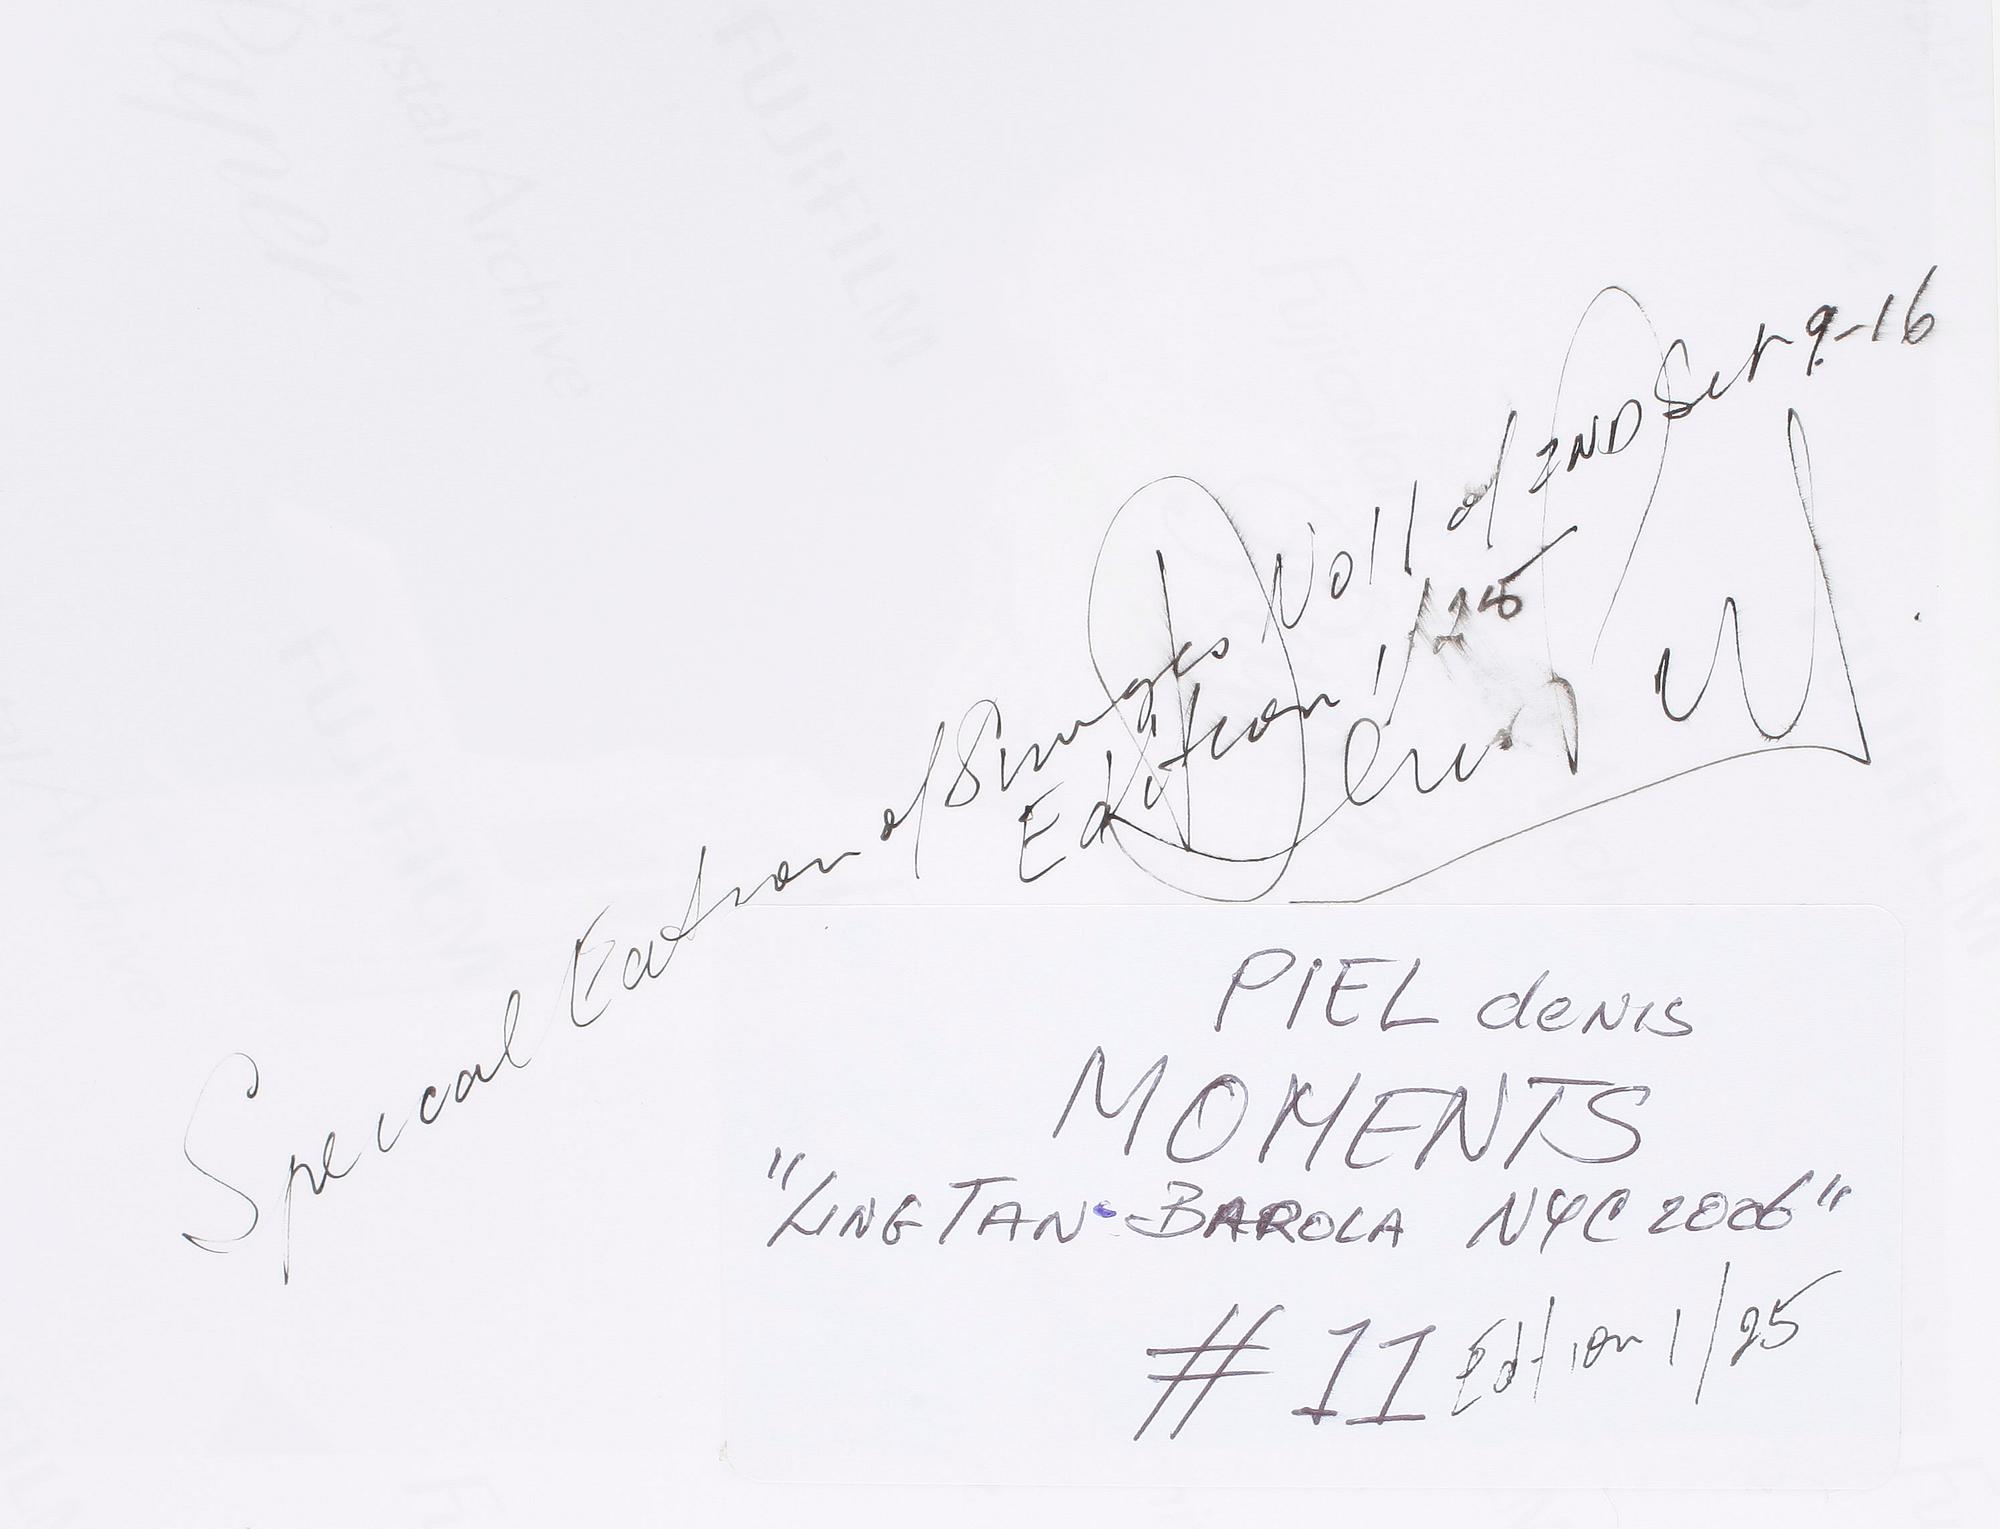 Special Edition of Singles No 11 of 2ND Set 9-16
Edition 1/25
PIEL denis
MOMENTS
"LING TAN - BAROLA NYC 2006"
# 11 Edition 1/25
FUJIFILM
Crystal Archive
Paper
Fujicolor
FUJIFILM
Crystal Archive